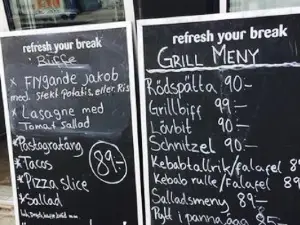 refresh your break
Buffe
* Flygande jakob
med. stekt Potatis, eller. Ris
* Lasagne med
Tomat Sallad
* Pastagratäng
* Tacos
* Pizza slice
* Sallad
89:-
refresh your break
GRILL MENY
Rödspätta 90-
Grillbiff 99-
Lövbit 90-
Schnitzel 90-
Kebabtallrik/falafel
Kebab rulle/Falafel 89
Salladsmeny 89-
Pytt i panna
85-